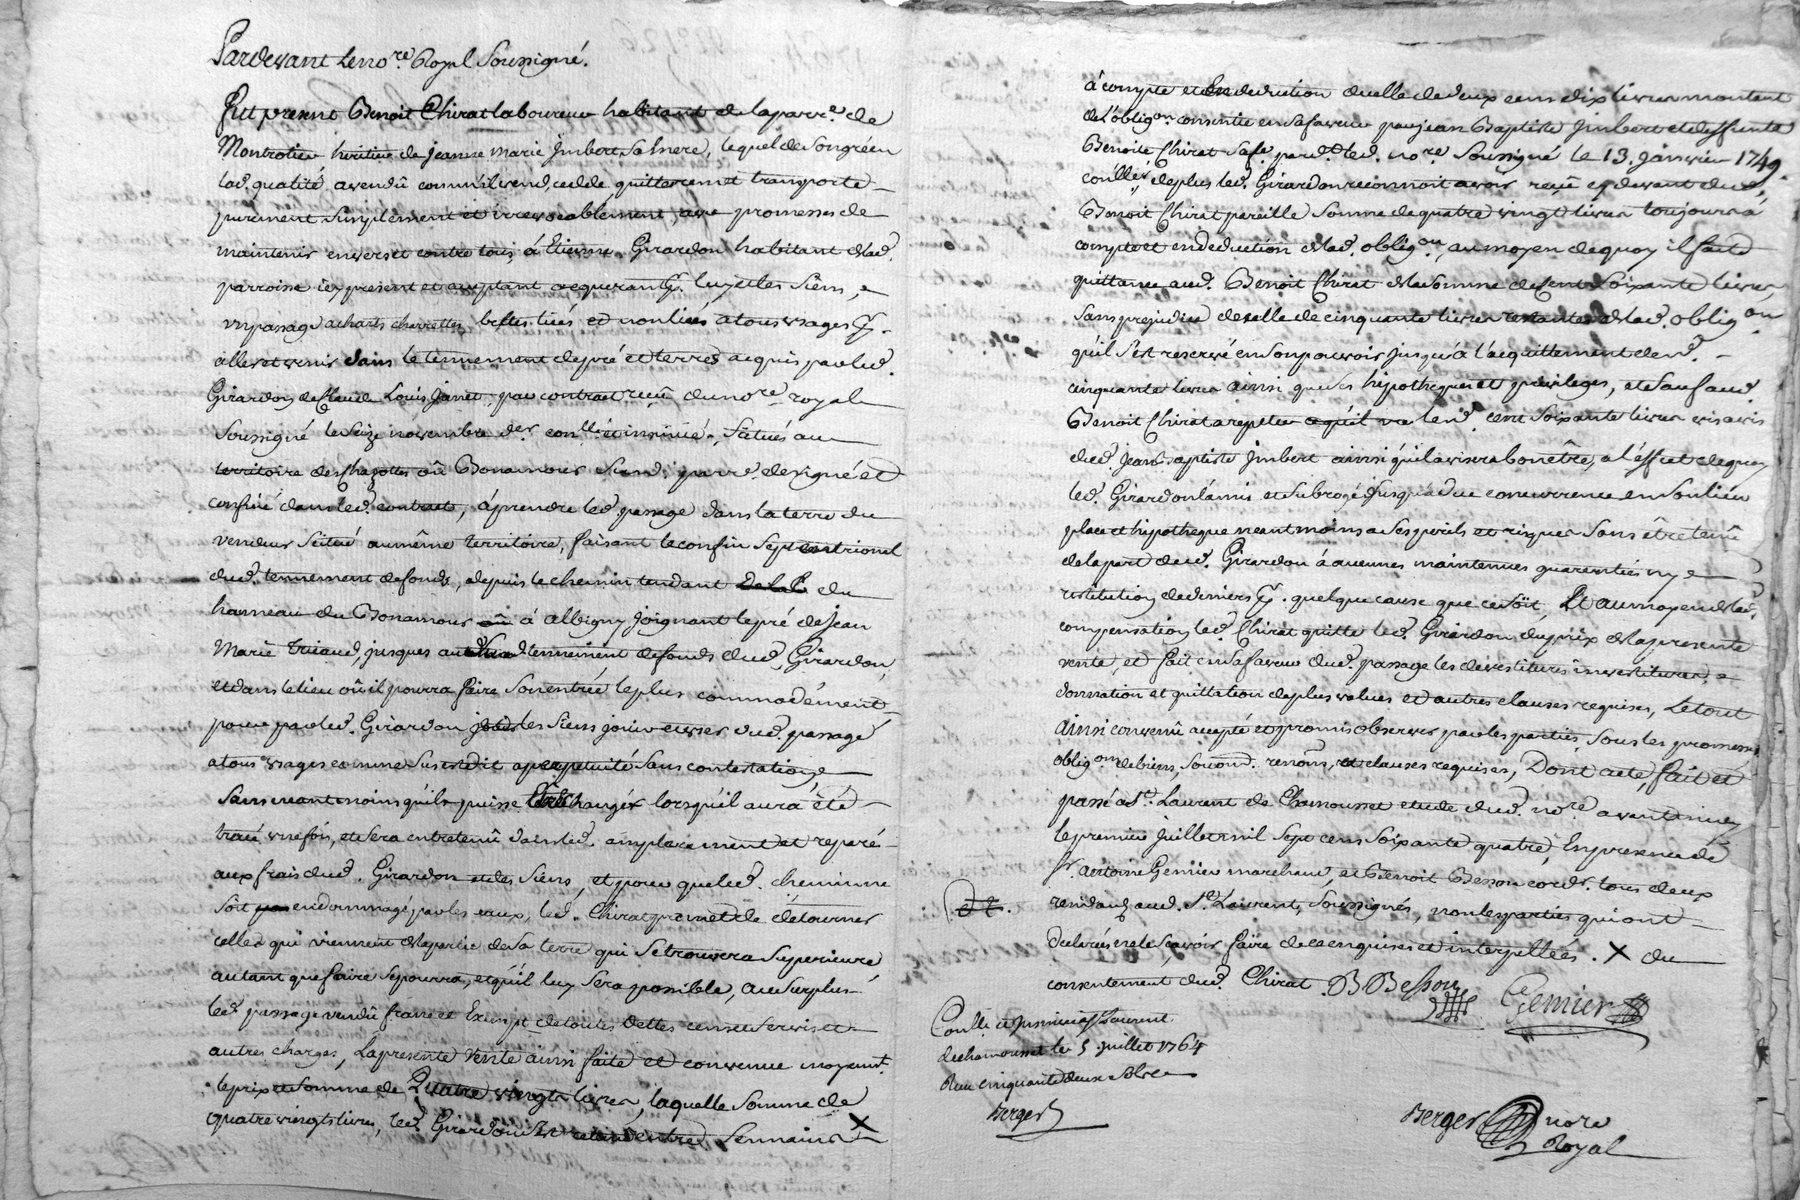 Pardevant le no.re Royal Soussigné.
Fut present Benoit Chirat laboureur habitant de la parr.e de
Montrotier heritier de jeanne marie Jmbert sa mere, lequel de son gré en
lad. qualité a vendû comm'il vend, cedde quitte remet transporte
purement simplement et irrevocablement, avec promesse de
maintenir envers et contre tous, à Etienne Girardon habitant de lad.
parroisse icy present et acceptant acquerant p.r luy et les siens,
un passage a chars charrettes bestes liéés et non liéés a tous usages p.r
aller et venir dans le tennement de pré et terres acquis par led.
Girardon de Claude Louis Janet, par contract reçû du no.re royal
Soussigné le seize novembre d.er con.llé et insinué. Situés au
territoire des Chazottes où Bonamour susd. parr.e designé et
confiné dans led. contract, à prendre led. passage dans la terre du
vendeur scitué au même territoire, faisant le confin septentrional
dud. tennement de fonds, depuis le chemin tendant du
hameau du Bonamour à albigny joignant le pré de jean
Marie Triaud, jusques aud. tennement de fonds dud. Girardon,
et dans le lieu où il pourra faire son entréé le plus commodément
pour par led. Girardon les siens jouir et user dud. passage
a tous usages comme susdit a perpetuité sans contestation,
sans neantmoins qu'il puisse l'échanger lorsqu'il aura été
tracé une fois, et sera entretenû dans led. emplacement et reparé
aux frais dud. Girardon et des siens, et pour que led. chemin ne
soit endommagé par les eaux, led. Chirat promet de détourner
celles qui viennent de la partie de sa terre qui se trouvera superieure
autant que faire se pourra, et qu'il luy sera possible, au surplus
led. passage vendû franc et exempt de toutes dettes cens servis et
autres charges, La presente vente ainsi faite et convenue moyent.
le prix et somme de Quatre vingts livres, laquelle somme de
quatre vingts livres, led. Girardon entre ses mains X
à compte et en deduction de celle de deux cens dix livres montant
de l'oblig.on consentie en sa faveur par jean Baptiste Jmbert et deffunte
Benoite Chirat sa fe. pard.t led. no.re Soussigné le 13. janvier 1749.
con.llée, de plus led. Girardon reconnoit avoir reçû cy devant dud.
Benoit Chirat pareille somme de quatre vingt livres toujours à
compte et en deduction de lad. oblig.on, au moyen de quoy il fait
quittance aud. Benoit Chirat de la somme de Cent soixante livres,
sans prejudice de celle de cinquante livres restantes de lad. oblig.on
qu'il s'est reservé en son pouvoir jusqu'à l'acquittement desd.
cinquante livres ainsi que ses hypotheques et privileges, et sauf aud.
Benoit Chirat a repeter lesd. cent soixante livres vis a vis
dud. Jean Baptiste Jmbert ainsi qu'il avisera bon être, a l'effet de quoy
led. Girardon l'a mis et subrogé jusqu'à due concurrence en son lieu
place et hypotheque neantmoins a ses perils et risques sans être tenû
de la part dud. Girardon à aucunes maintenues guarenties ny
restitution de deniers p.r quelque cause que ce soit, Et au moyen de lad.
compensation led. Chirat quitte led. Girardon du prix de la presente
vente, et fait en sa faveur dud. passage les devestitures investitures,
donnation et quittation de plus values et autres clauses requises, Le tout
ainsi convenû accepté et promis observer par les parties, sous les promesses
oblig.ons de biens, renon. et clauses requises, Dont acte, fait et
passé a S.t Laurent de Chamousset etude dud. no.re avant midy
le premier juillet mil sept cens soixante quatre, En presence de
Sr. Antoine Gemier marchand, et Benoit Besson cord.r tous deux
residants aud. S.t Laurent, Soussignés, non les parties qui ont
declaréés ne le sçavoir faire de ce enquises et interpelléés. X du
consentement dud. Chirat. B Besson Gemier
Con.llé et insinué a S.t Laurent
de chamousset le 5 juillet 1764
Reçu cinquante deux sols
Berger
Berger no.re
Royal